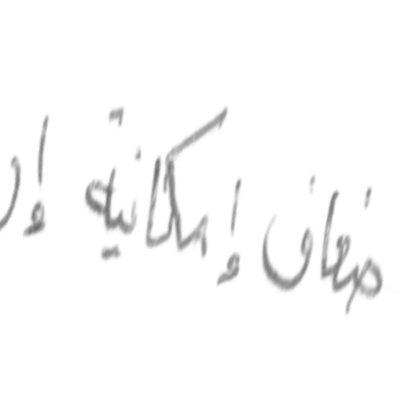 ضعاف إمكانية